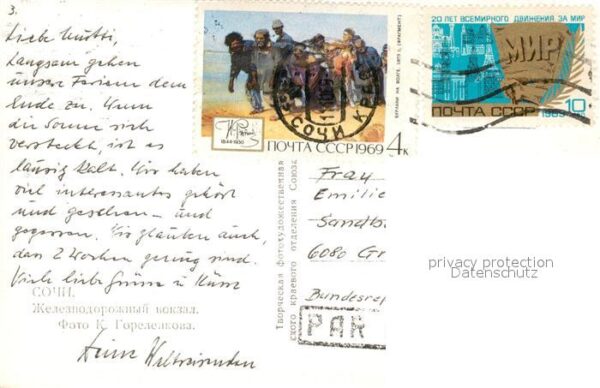 3.
Liebe Mutti,
Langsam gehen
unsere Ferien dem
Ende zu. Wenn
die Sonne sich
versteckt, ist es
lausig kalt. Wir haben
viel interessantes gehört
und gesehen – und
gegessen. Wir glauben auch,
dass 2 Wochen genug sind.
Viele liebe Grüsse u Küsse
СОЧИ.
Железнодорожный вокзал.
Фото К. Горелепкова.
Deine Weltreisenden
1844-1930
ПОЧТА СССР 1969 4к
БУРЛАКИ НА ВОЛГЕ.
(ФРАГМЕНТ)
СОЧИ
20 ЛЕТ ВСЕМИРНОГО ДВИЖЕНИЯ ЗА МИР
МИР
ПОЧТА СССР 1969 10
Творческая фотохудожественная
ского краевого отделения Союза
Frau
Emilie
Sandtb
6080 Gr
Bundesrep
PAR
privacy protection
Datenschutz